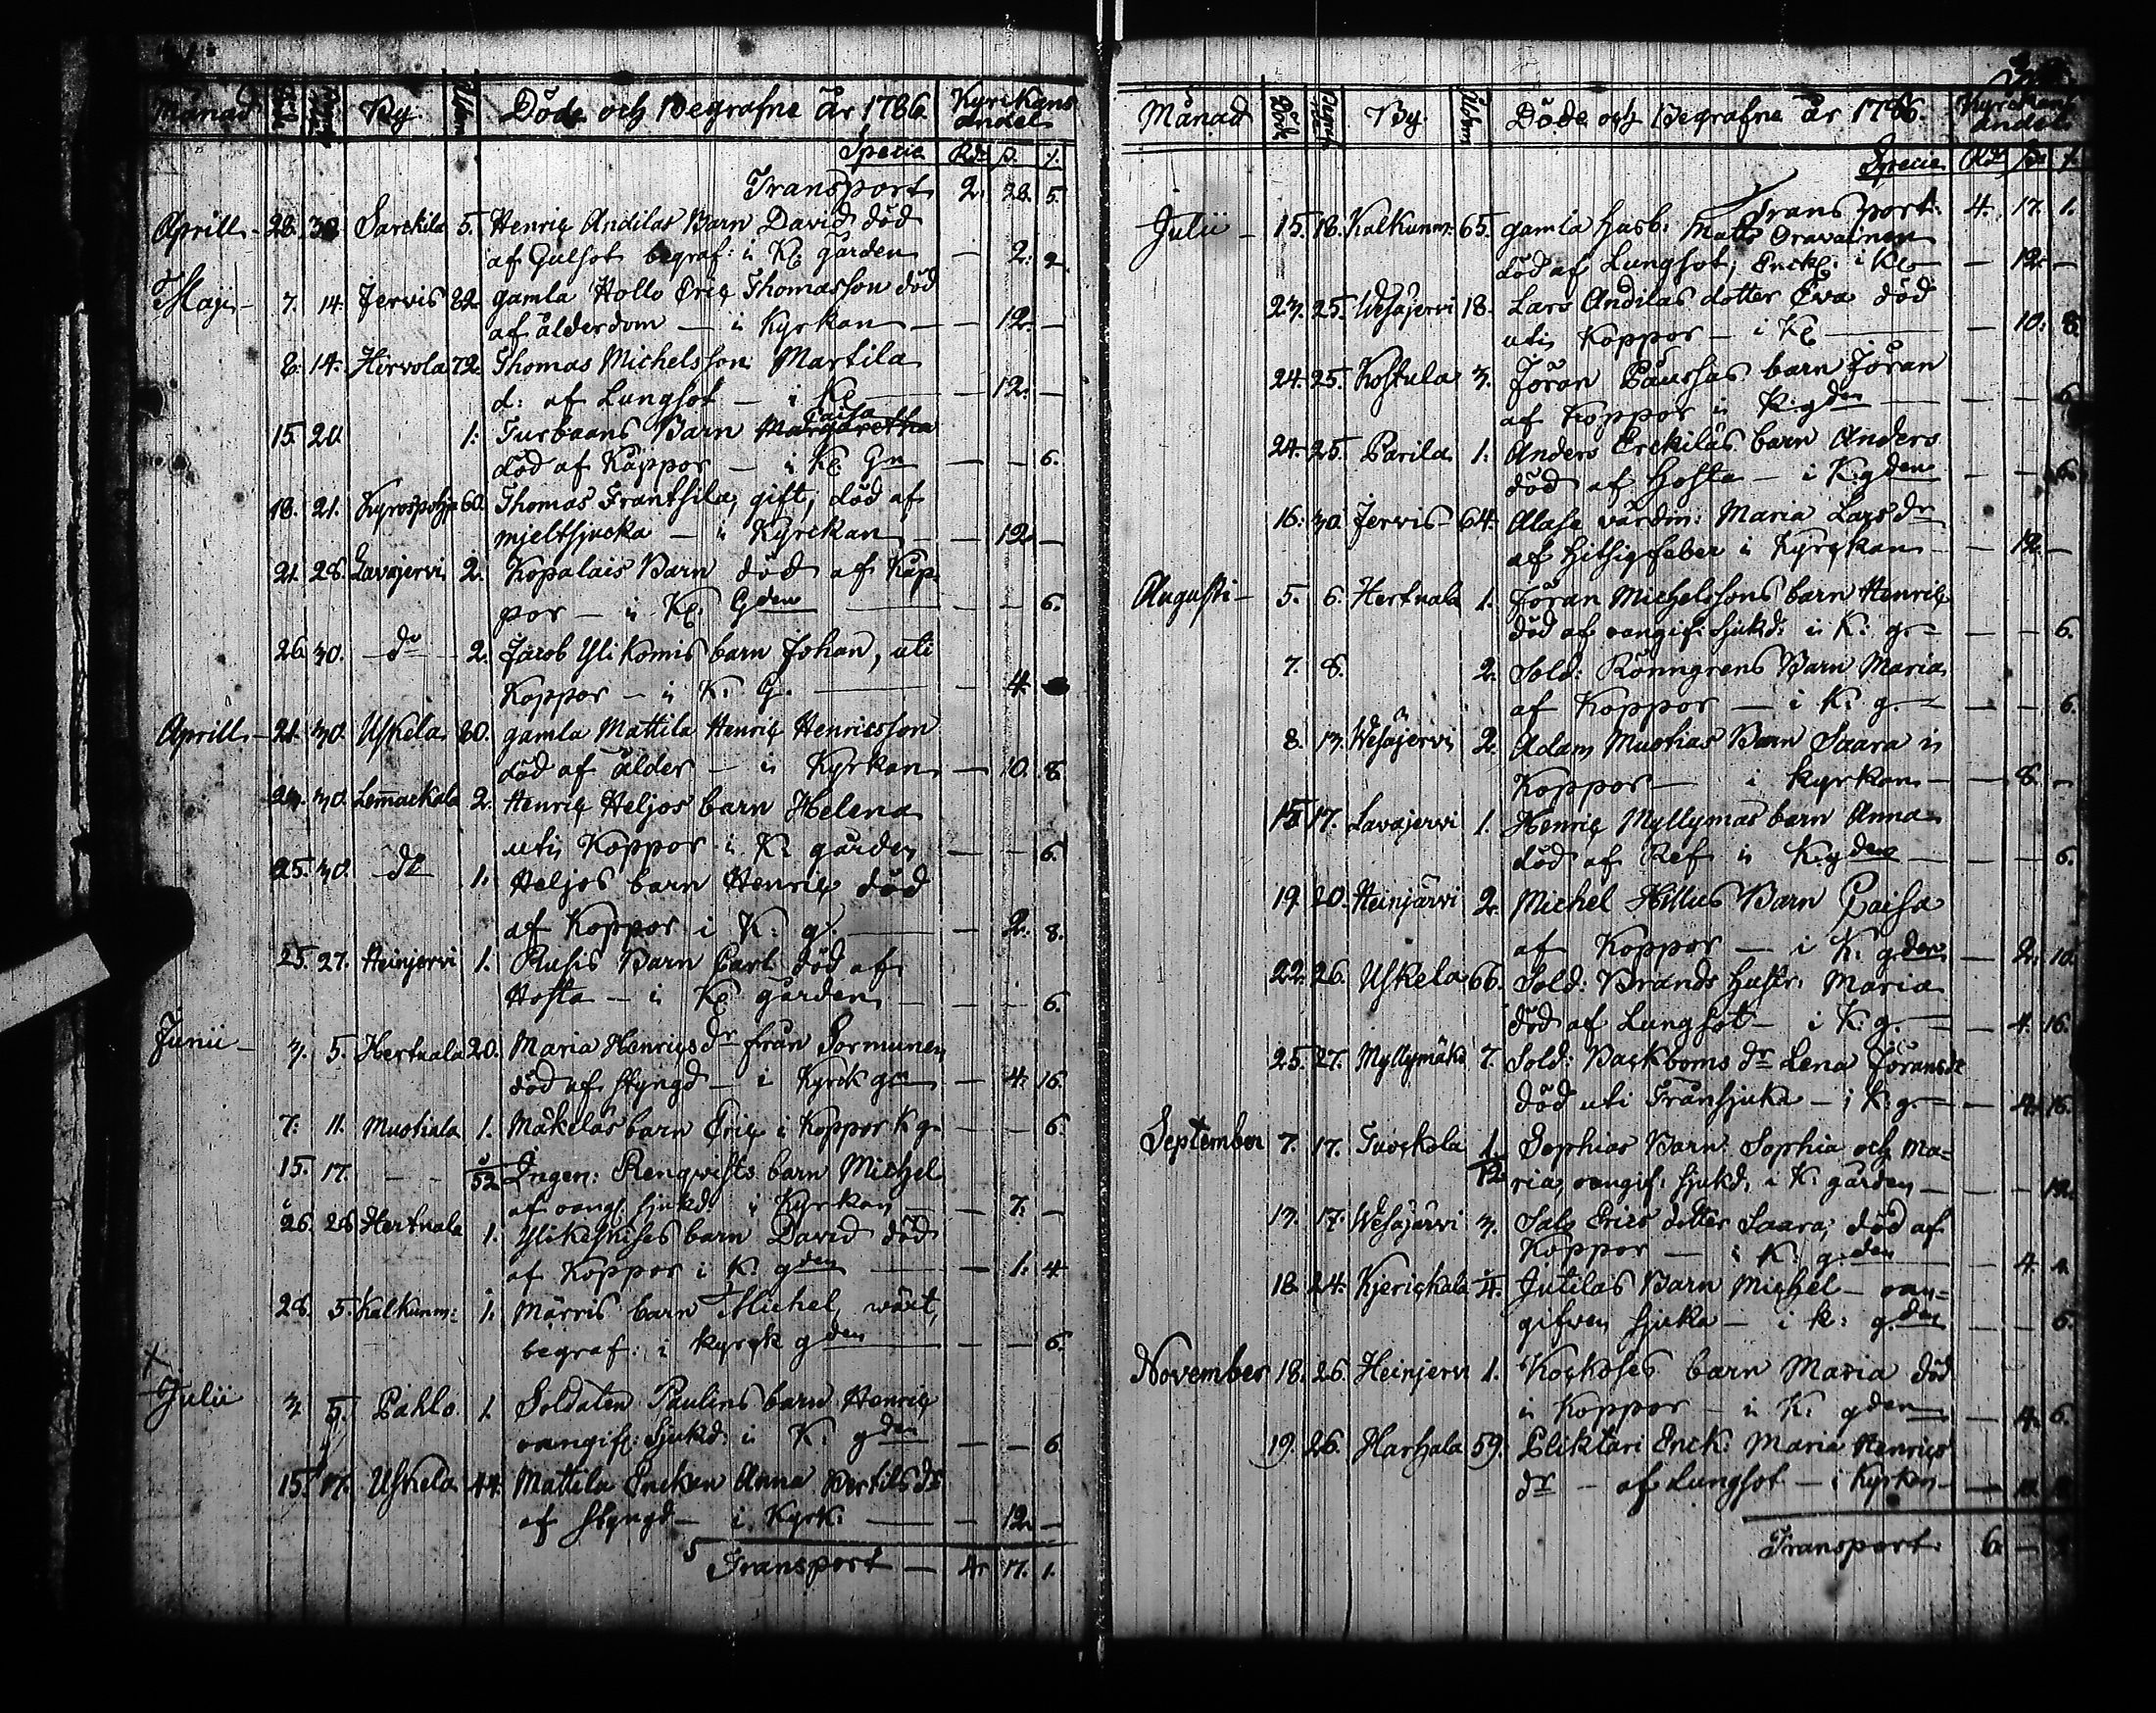 Månad By Åldren Döde och Begrafne år 1786 Kyrckans andel
Specie Rdr ß. r.
Transport 2. 28. 5.
Aprill 28. 30. Sarckila 5. Henric Andilas Barn David död
af Gulsot begraf: i K: gården 2. 2.
Maji 7. 14. Jervis 82. gamla Hollo Eric Thomasson död
af ålderdom i Kyrkan 12.
8. 14. Hirvola 72. Thomas Michelsson Martila
d: af Lungsot i K: 12.
15. 20. 1. Turbaans Barn Margaretha Caisa
död af Kåppor i K. Gn 6.
18. 21. Kyrospohja 60. Thomas Frantsila, gift, död af
mjeltsjucka i Kyrckan 12
21. 28. Lavajervi 2. Kopalais Barn död af Kåp
por i K: Gden 6.
26. 30. do 2. Jacob Ylikomis barn Johan, uti
Koppor i K: G. 4.
Aprill 21. 30. Uskela 80. gamla Mattila Henric Henricsson
död af ålder i Kyrkan 10. 8
24. 30. Lemackala 2. Henric Heljos barn Helena
uti Koppor i K: gården 6.
25. 30. do 1. Heljos barn Henric död
af Koppor i K: g. 2. 8.
25. 27. Heinjervi 1. Rusis Barn Carl död af
Hosta i K: gården 6.
Junii 3. 5. Hertuala 20. Maria Henricsdr från Sormunen
död af styngd i Kyrck gn 4. 16.
7. 11. Muotiala 1. Mäkeläs barn Eric i Koppor K g. 6.
15. 17. 52 Ingen: Renqvists barn Michel
af oangf. sjukd. i Kyrkan 7.
26. 28. Hertuala 1. barn David död
af Koppor i K: gden 1. 4
28. 5. Kalkunm: 1. Mårris barn Michel, wäxt,
begraf: i kyrck gden 6.
Julii 3. 5. Pahlo 1. Soldaten Paulins barn Henric
oangif: sjukd: i K: gden 6
15. 17. Uskela 44. Mattila Enckan Anna Bertilsdr
af styngd i Kyrk: 12.
Transport 4. 17. 1.
Månad Död Begraf By Åldren Döde och Begrafne år 1786. Kyrckans andel
Specie Rdr ß. r.
Transport. 4. 17. 1.
Julii 15. 18. Kalkunm: 65. gamla husb: Matts Oravainen
död af Lungsot, Enckl: i K: 12.
23. 25. Wesajervi 18. Lars Andilas dotter Eva död
uti Koppor i K: 10. 8.
24. 25. Kostula 3. Jöran barn Jöran
af Koppor i K: gden 6
24. 25. Parila 1. Anders Erckiläs barn Anders
död af hosta i K: gden 6
16. 30. Jervis 64. Alase värdin: Maria Larsdr
af hitsigfeber i Kyrckan 12.
Augusti 5. 6. Hertuala 1. Jöran Michelssons barn Henric
död af oangif. sjukd: i K: g. 6.
7. 8. 2. Sold: Rönngrens Barn Maria
af Koppor i K: g. 6.
8. 13. Wesajervi 2. Adam Muotias Barn Saara i
Koppor i kyrkan 8.
15 17. Lavajervi 1. Henric Myllymas barn Anna
död af Ref i K: gden 6.
19. 20. Heinjärvi 2. Michel Hillus Barn Caisa
af Koppor i K. gden 2. 10
22. 26. Uskela 66. Sold: Brands hustr. Maria
död af Lungsot i K: g. 4. 16.
25. 27. Myllymäki 7. Sold: Backboms dr Lena Jöransdr
död uti Fransjuka i K: g. 4. 16.
September 7. 17. Tuockola 1/12 Sophias Barn Sophia och Ma=
ria, oangif: sjukd. i K: gården 12.
13. 17. Wesajärvi 3. Erics dotter Saara, död af
Koppor i K: gden 4.
18. 24. Kjerickala 4. Jutilas Barn Michel oan=
gifven sjuka i k: gden 6.
November 18. 26. Heinjervi 1. Kockoses barn Maria död
i Koppor i K: gden 4. 6.
19. 26. Harhala 59. Eliktari Enck: Maria Henrics
dr af Lungsot i Kyrkan
Transport. 6.